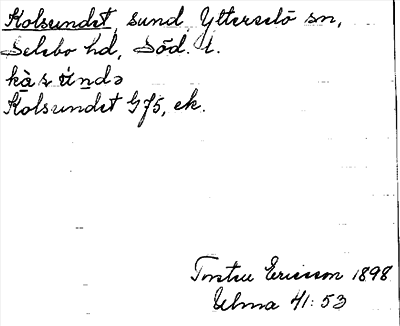 Kolsundet, sund Ytterselö sn,
Selebo hd, Söd. l.
Kolsundet G75, ek.
Torsten Ericsson 1898
Ulma 41:53